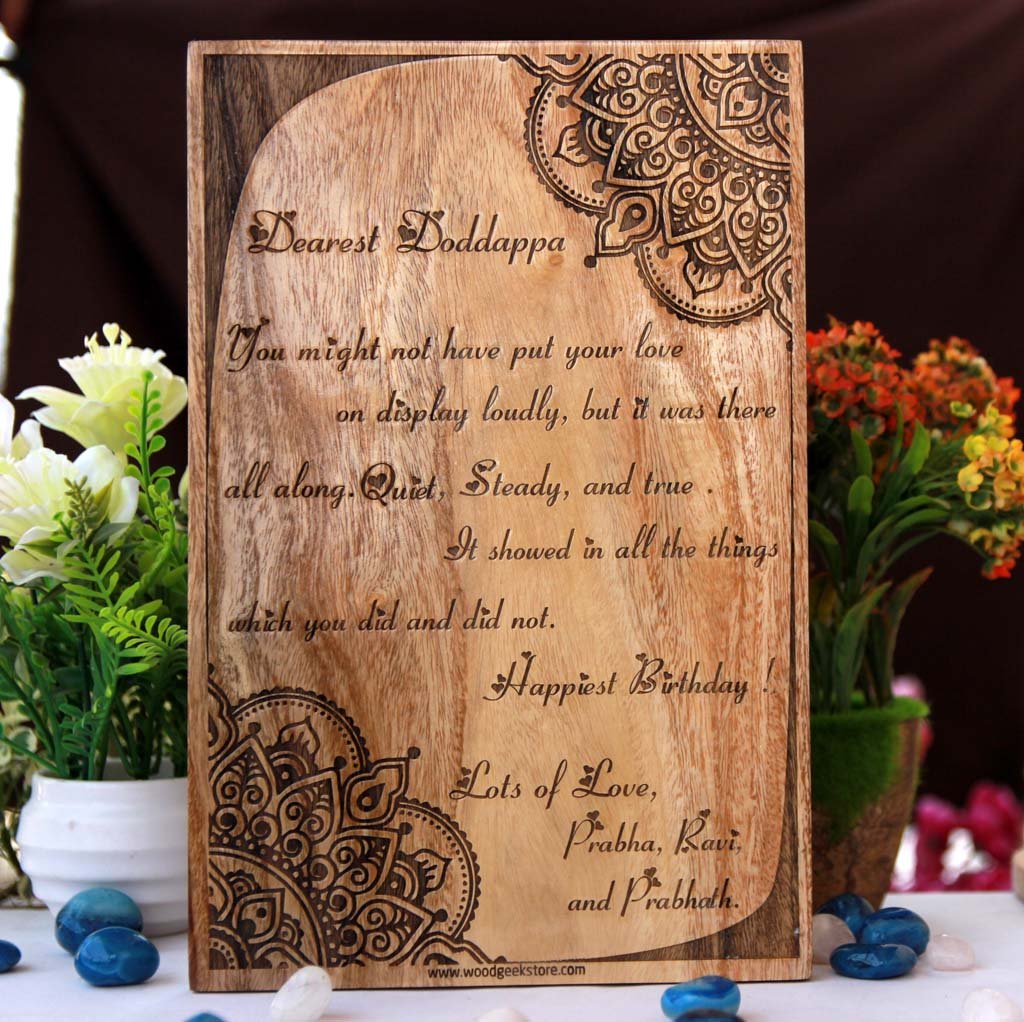 Dearest Doddappa
You might not have put your love
on display loudly, but it was there
all along. Quiet, Steady, and true .
It showed in all the things
which you did and did not.
Happiest Birthday !.
Lots of Love,
Prabha, Ravi,
and Prabhath.
www.woodgeekstore.com